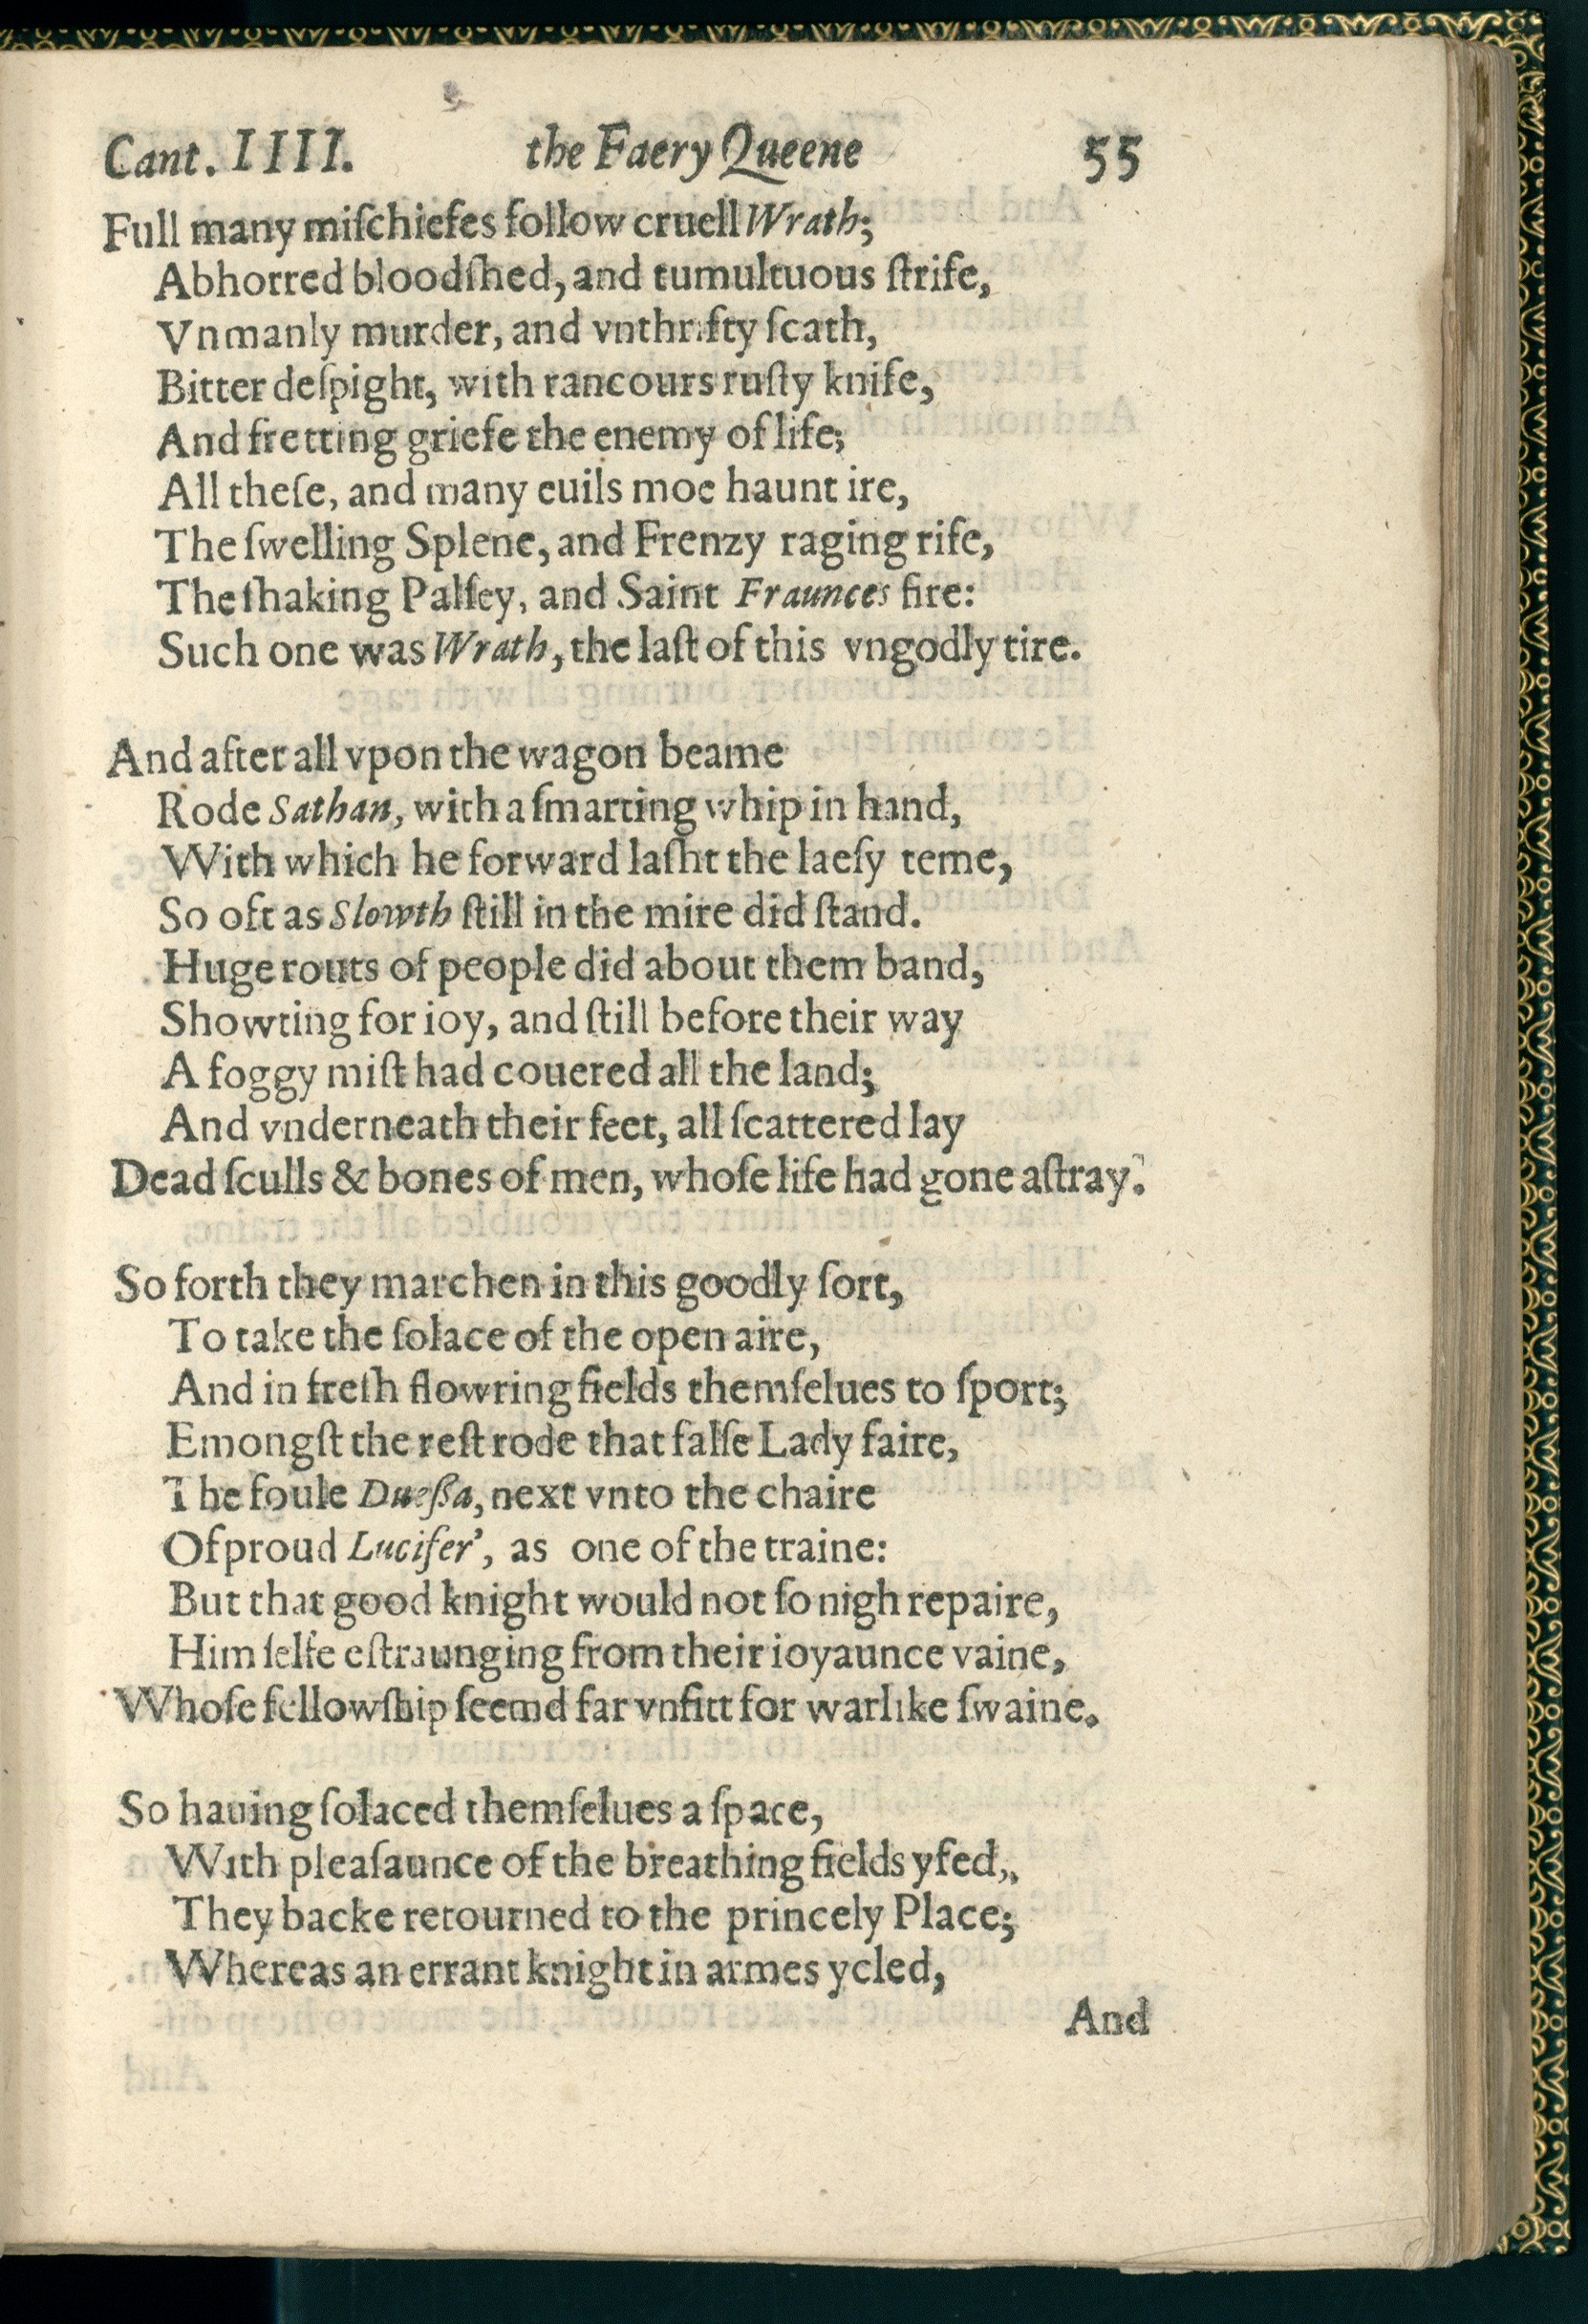 Cant. IIII. the Faery Queene 55
Full many miſchiefes follow cruell Wrath;
Abhorred bloodſhed, and tumultuous ſtrife,
Vnmanly murder, and vnthrifty ſcath,
Bitter deſpight, with rancours ruſty knife,
And fretting griefe the enemy of life;
All theſe, and many euils moe haunt ire,
The ſwelling Splene, and Frenzy raging rife,
The ſhaking Palſey, and Saint Fraunces fire:
Such one was Wrath, the laſt of this vngodly tire.
And after all vpon the wagon beame
Rode Sathan, with a ſmarting whip in hand,
With which he forward laſht the laeſy teme,
So oft as Slowth ſtill in the mire did ſtand.
Huge routs of people did about them band,
Showting for ioy, and ſtill before their way
A foggy miſt had couered all the land;
And vnderneath their feet, all ſcattered lay
Dead ſculls & bones of men, whoſe life had gone aſtray.
So forth they marchen in this goodly ſort,
To take the ſolace of the open aire,
And in freſh flowring fields themſelues to ſport;
Emongſt the reſt rode that falſe Lady faire,
The foule Dueſſa, next vnto the chaire
Of proud Lucifer', as one of the traine:
But that good knight would not ſo nigh repaire,
Him ſelfe eſtraunging from their ioyaunce vaine,
Whoſe fellowſhip ſeemd far vnfitt for warlike ſwaine.
So hauing ſolaced themſelues a ſpace,
With pleaſaunce of the breathing fields yfed,
They backe retourned to the princely Place;
Whereas an errant knight in armes ycled,
And